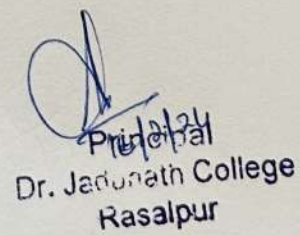 Principal
Dr. Jadunath College
Rasalpur